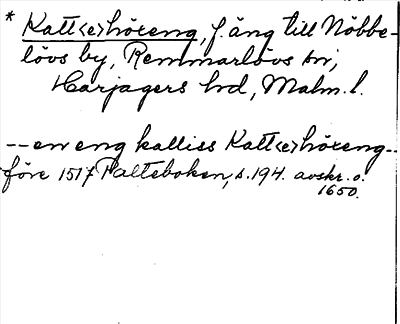 * Katt<e>höreng, f. äng till Nöbbe-
lövs by, Remmarlövs sn,
Harjagers hd, Malm. l.
-- en eng kalliss Katt<e>höreng--
före 1517 Palteboken, s. 194. avskr. o.
1650.